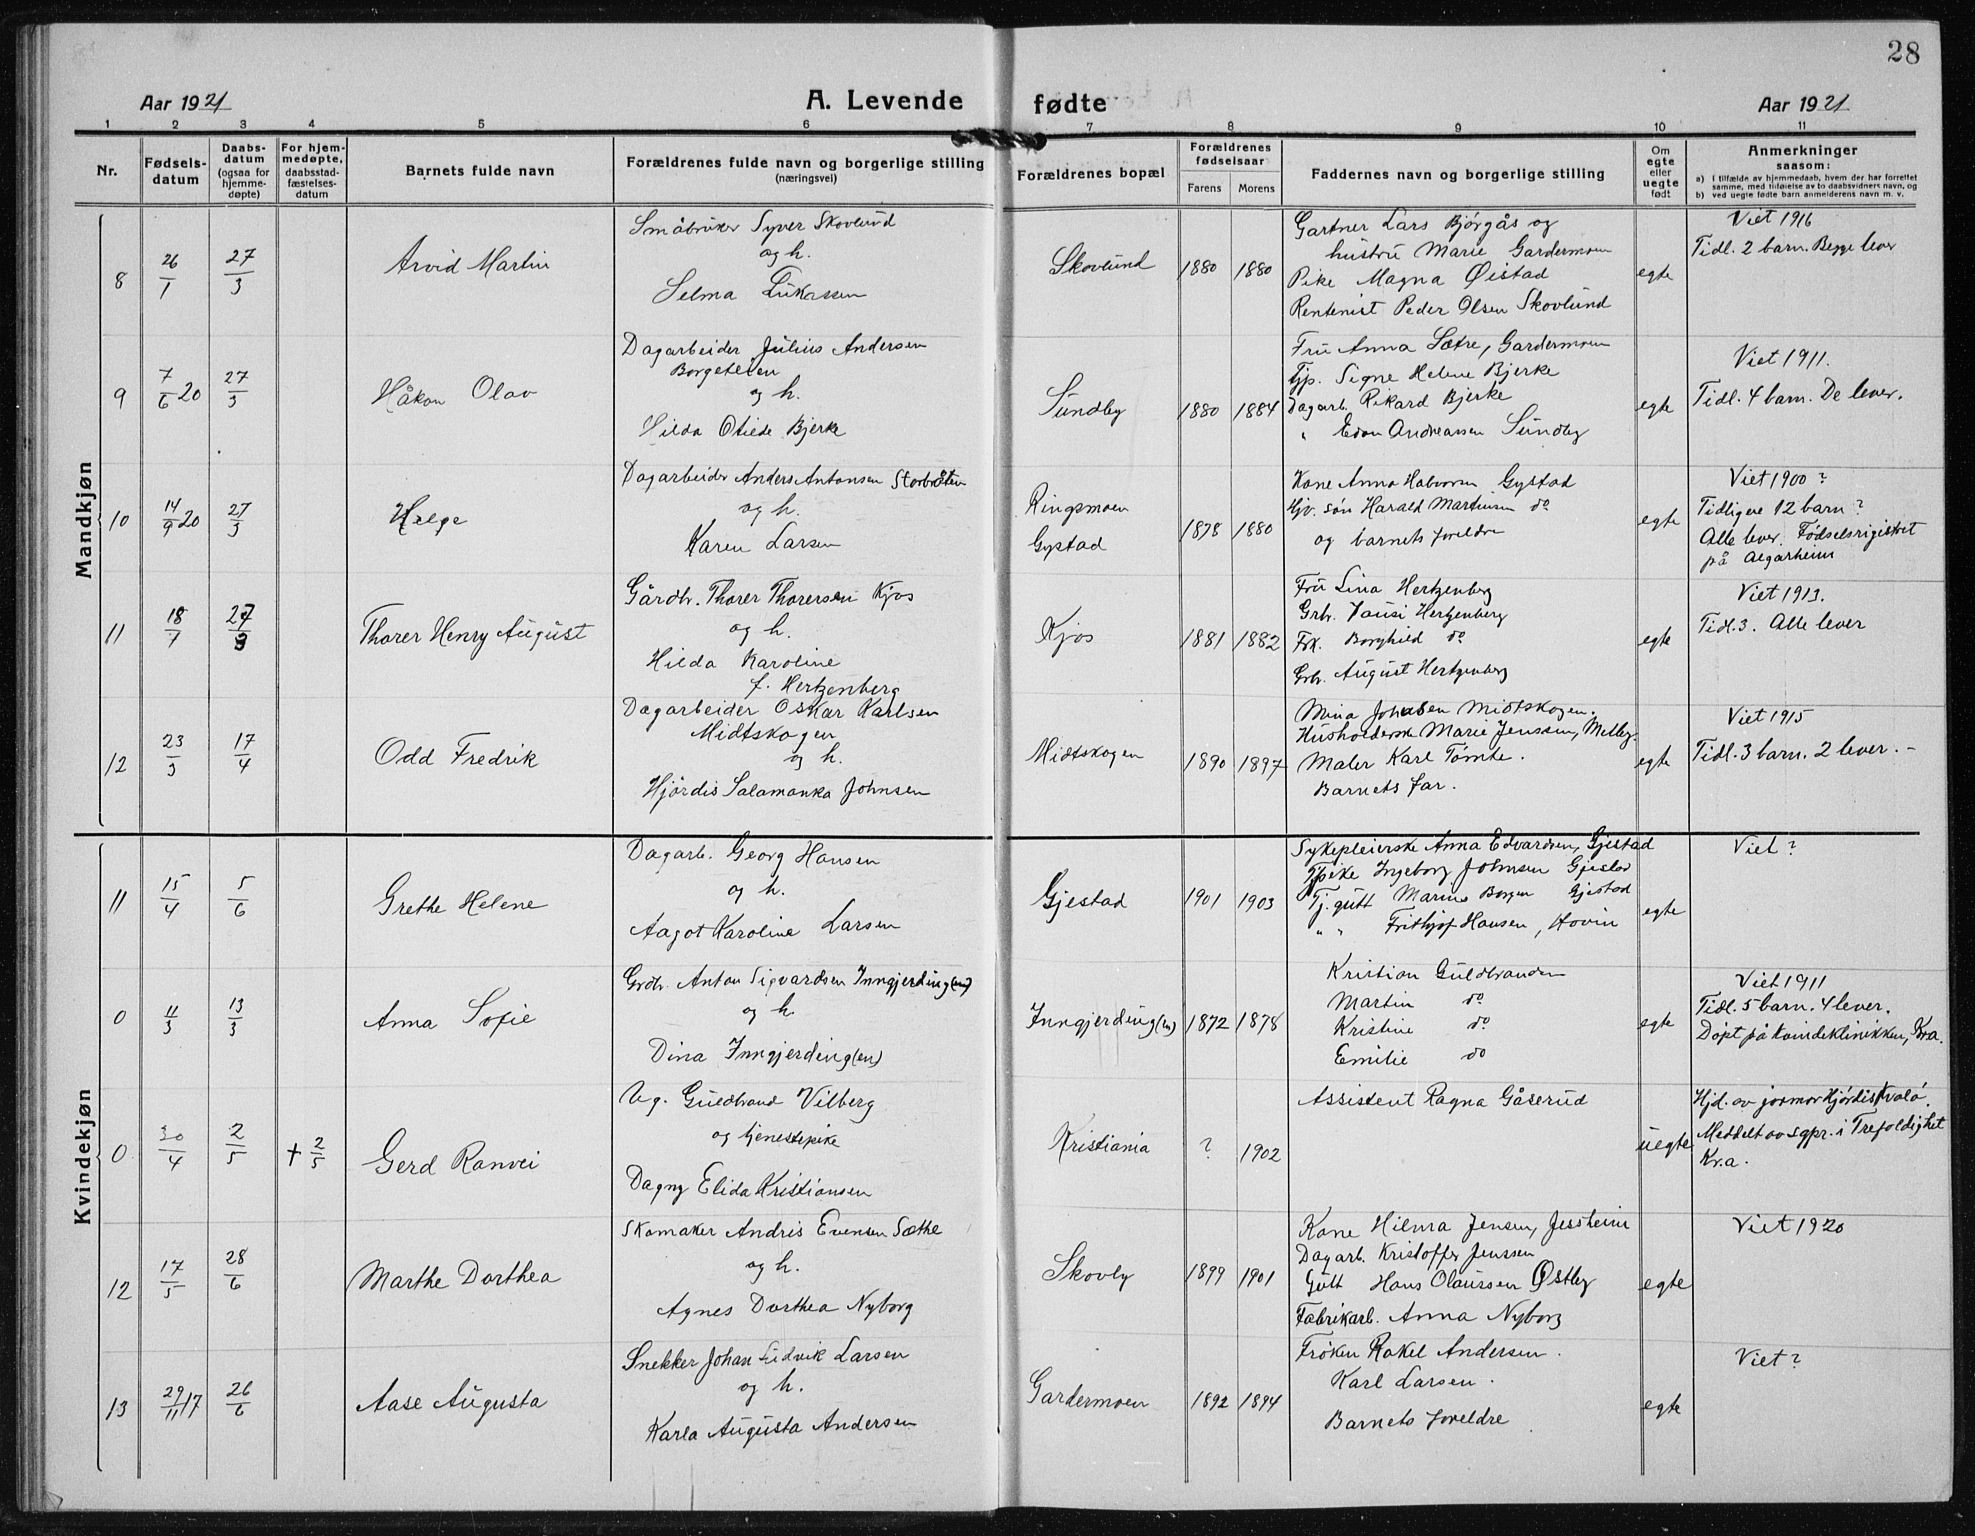 28
Aar 1921
A. Levende
fødte
Aar 1921
1 2 3 4 5 6 7 8 9 10 11
Nr.
Fødsels-
datum
Daabs-
datum
(ogsaa for
hjemme-
døpte)
For hjem-
medøpte,
daabsstad-
fæstelses-
datum
Barnets fulde navn
Forældrenes fulde navn og borgerlige stilling
(næringsvei)
Forældrenes bopæl
Forældrenes
fødselsaar
Farens Morens
Faddernes navn og borgerlige stilling
Om
egte
eller
uegte
født
Anmerkninger
saasom:
a) i tilfælde av hjemmedaab, hvem der har forrettet
samme, med tidløielse av to daabsvidners navn, og
b) ved uegte fødte barn anmelderens navn m. v.
Mandkjøn
8
26/1
27/3
Arvid Martin
Småbruker Syver Skovlund
og h.
Selma Lukassen
Skovlund
1880 1880
Gartner Lars Bjørgås og
hustru Marie Gardermoen
Pike Magna Øistad
Rentenist Peder Olsen Skovlund
egte
Viet 1916
Tidl. 2 barn. Begge lever
9
7/6 20
27/3
Håkon Olav
Dagarbeider Julius Andersen
Borgeteien
og h.
Hilda Otilde Bjerke
Sundby
1880 1884
Fru Anna Sætre, Gardermoen
Tjp. Signe Helene Bjerke
Dagarb. Rikard Bjerke
" Edon Andreassen Sundby
egte
Viet 1911.
Tidl. 4 barn. De lever.
10
14/9 20
27/3
Helge
Dagarbeider Anders Antonsen Storbråten
og h.
Karen Larsen
Ringsmoen
Gystad
1878 1880
Kone Anna Halvorsen Gystad
Hjv. søn Harald Marthinsen do
og barnets foreldre
egte
Viet 1900 ?
Tidligere 12 barn ?
Alle lever. Fødselsrigistret
på Algarheim
11
18/7
27/3
Thorer Henry August
Gårdbr. Thorer Thorersen Kjos
og h.
Hilda Karoline
f. Hertzenberg
Kjos
1881 1882
Fru Lina Hertzenberg
Grbr. Hertzenberg
Frk. Borghild do
Grbr. August Hertzenberg
egte
Viet 1913.
Tidl. 3. Alle lever
12
23/3
17/4
Odd Fredrik
Dagarbeider Oskar Karlsen
Midtskogen
og h.
Hjørdis Salamonka Johnsen
Midtskogen
1890 1897
Mina Johnsen Midtskogen.
Husholderske Marie Jenssen, Melby.
Maler Karl Tømte.
Barnets far.
egte
Viet 1915
Tidl. 3 barn. 2 lever. -
Kvindekjøn
11
15/4
5/6
Grethe Helene
Dagarb. Georg Hansen
og h.
Aagot Karoline Larsen
Gjestad
1901 1903
Sykepleierske Anna Edvardsen, Gjestad
Tjpike Ingeborg Johnsen Gjestad
Tj. gutt Marius Borgen Gjestad
" " Frithjof Hansen, Hovin
egte
Viet ?
0
11/3
13/3
Anna Sofie
Grdbr. Anton Sigvardsen Inngjerding(en)
og h.
Dina Inngjerding(en)
Inngjerding(en)
1872 1878
Kristian Guldbrandsen
Martin do
Kristine do
Emilie do
egte
Viet 1911
Tidl. 5 barn. 4 lever.
Døpt på Kvindeklinikken, Kra.
0
30/4
2/5
+ 2/5
Gerd Ranvei
Ug. Guldbrand Vilberg
og tjenestepike
Dagny Elida Kristiansen
Kristiania
? 1902
Assistent Ragna Gåserud
uegte
Hjd. av jormor Hjørdis Kvalø.
Meddelt av sgpr. i Trefoldighet
Kr.a.
12
17/5
28/6
Marthe Dorthea
Skomaker Andris Evensen Sæthe
og h.
Agnes Dorthea Nyborg
Skovly
1899 1901
Kone Hilma Jensen, Jessheim
Dagarb. Kristoffer Jenssen
Gutt Hans Olaussen Østby
Fabrikarb. Anna Nyborg
egte
Viet 1920
13
29/11 17
26/6
Aase Augusta
Snekker Johan Ludvik Larsen
og h.
Karla Augusta Andersen
Gardermoen
1892 1894
Frøken Rakel Andersen.
Karl Larsen.
Barnets foreldre
egte
Viet ?